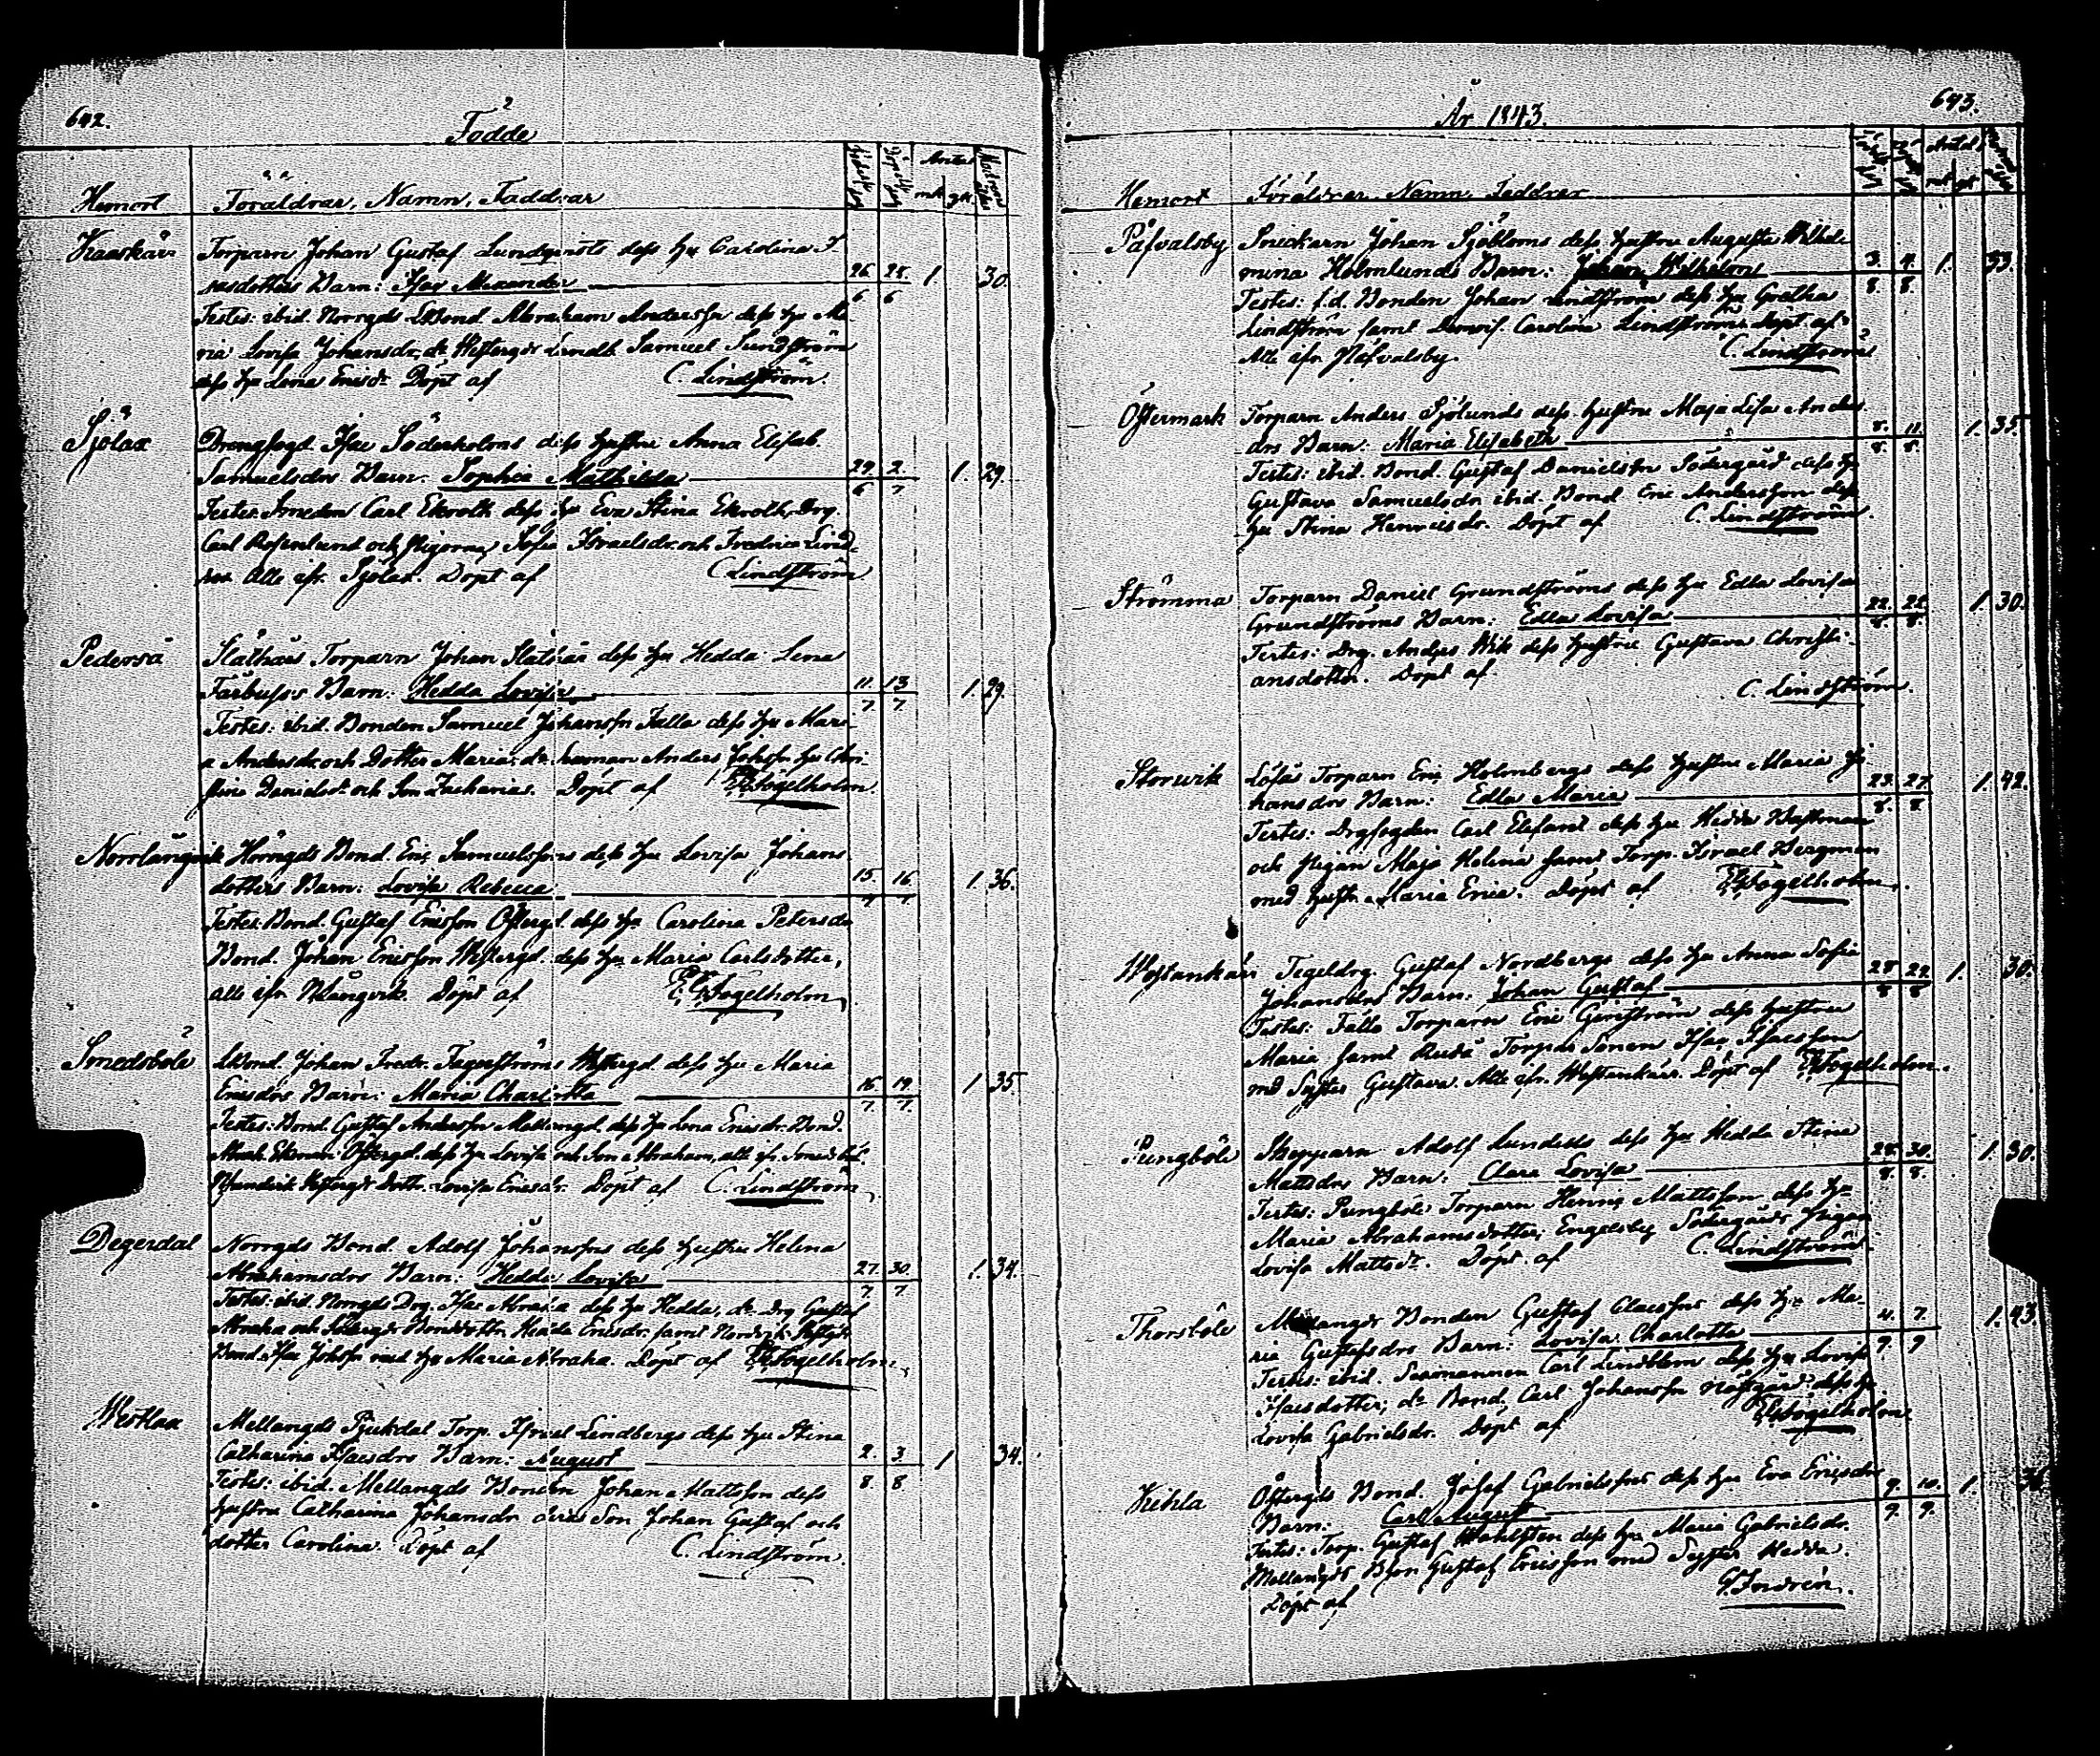 642.
Födde
Hemort Föräldrar, Namn, Faddrar
mk. gk.
Torparn Johan Gustaf Lundqvists dess hu Carolina I
sasdotters Barn: Isac Alexander 26 28 1 30.
6 6
Testes: ibid. Norrgds Bond Abraham Anderssn dess hu Ma
ria Lovisa Johansdr, do Westergds Samuel Sundström
dess hu Lena Ericsdr Döpt af C. Lindström.
Sjölax Drengfogd. Isac Söderholms dess hustru Anna Elisab.
Samuelsdrs Barn: Sophia Mathilda 29. 2. 1. 29.
6 7
Testes: Smeden Carl Ekroth dess hu Eva Stina Ekroth, Drg.
Carl Rosenlund och Pigorna Sofia Israelsdr och Fredrica Lind
Alle ifr. Sjölax. Döpt af C. Lindström
Pederså Slåthär Torparn Johan Slathär dess hu Hedda Lena
Barn: Hedda Lovisa 11. 13 1. 29.
7 7
Testes: ibid. Bonden Samuel Johanssn Falla dess hu Mari
a Andersdr och Dotter Maria, do Anders Johssn hu Chri
stina Danielsdr och Son Zacharias. Döpt af Fogelholm.
Norrlångvik Norrgds Bond. Eric Samuelssons dess hu Lovisa Johans
dotters Barn: Lovisa Rebecca 15. 16. 1. 36.
7 7
Testes: Bond. Gustaf Ericsson Österg. dess hu Carolina Petersdr
Bond. Johan Ericsson Westergd. dess hu Maria Carlsdotter,
alle ifr NLångvik. Döpt af Fogelholm
Smedsböle Bond. Johan Fredr. Fagerströms Westergd. dess hu Maria
Ericsdrs Barn: Maria Charlotta 16 19. 1 35.
7. 7.
Testes: Bond. Gustaf Anderssn Mellangd. dess hu Lena Ericsdr. Bond.
Abrah. Ekman Östergd. dess hu Lovisa och Son Abraham, alle ifr. Smedsböl.
Dottr. Lovisa Ericsdr. Döpt af C. Lindström
Degerdal Norrgds Bond. Adolf Johanssons dess hustru Helena
Abrahamsdrs Barn: Hedda Lovisa 27. 30. 1. 34.
7 7
Testes: ibid. Norrgds Drg. Isac Abraha dess hu Hedda, do Drg Gustaf
Abraha och Bonddottr Hedda Ericsdr. samt
Bond. Isac Johssn med hu Maria Abraha. Döpt af Fogelholm
Westlax Mellangds Torp. Israel Lindbergs dess hu Stina
Catharina Isacsdrs Barn: August 2. 3. 1 34.
8. 8
Testes: ibid. Mellangds Bonden Johan Mattsson dess
hustru Catharina Johansdr deras Son Johan Gustaf och
dotter Carolina. Döpt af C. Lindström.
År 1843. 643.
Hemort Föräldrar Namn Faddrar
Antal
mk gk
Påfvalsby Snickarn Johan Sjöbloms dess hustru Augusta Wilhel
mina Holmlunds Barn: Johan Wilhelm 3. 4. 1. 33.
8. 8.
Testes: f.d. Bonden Johan Lindström dess hu Gretha
Lindström samt Carolina Lindström. Döpt af
Alle ifr Påfvalsby. C. Lindström
Östermark Torparn Anders Sjölunds dess hustru Maja Lisa Anders
drs Barn: Maria Elisabeth 8. 11. 1. 35.
8. 8.
Testes: ibid. Bond. Gustaf Danielssn Södergård dess hu
Gustava Samuelsdr ibid. Bond Eric Andersson dess
hu Stina Henricsdr. Döpt af C. Lindström.
Strömma Torparn Daniel Grundströms dess hu Edla Lovisa
Grundströms Barn: Edla Lovisa 22. 25. 1. 30.
8. 8.
Testes: Drg. Anders Wik dess hustru Gustava Christi
ansdotter. Döpt af.
C. Lindström.
Storwik Torparn Eric Holmbergs dess hustru Maria Jo
hansdrs Barn: Edla Maria 23. 27. 1. 42.
8. 8
Testes: Drgfogden Carl Elefant dess hu Hedda
och Pigan Maja Helena samt Torp. Israel Bergman
med hustr. Maria Erica. Döpt af Fogelholm.
Westankärr Tegeldrg. Gustaf Nordbergs dess hu Anna Sofia
Johansdrs Barn: Johan Gustaf 28 29. 1. 30.
8 8
Testes: Fälla Torparn Eric dess hustru
Maria samt Torpar Sonen Isac Isacsson
med Syster Gustava. Alle ifr. Westankärr. Döpt af Fogelholm.
Pungböle Skepparn Adolf dess hu Hedda Stina
Mattsdrs Barn: Clara Lovisa 28. 30. 1. 30.
8. 8.
Testes: Pungböle Torparn Henric Mattsson dess hu
Maria Abrahamsdotter, Engelsby Södergårds Pigan
Lovisa Mattsdr. Döpt af C. Lindström.
Thorsböle Mellangds Bonden Gustaf Claessons dess hu Ma-
ria Gustafsdrs Barn: Lovisa Charlotta 4. 7. 1. 43.
9. 9
Testes: ibid. Carl Lindblom dess hu Lovisa
Isacsdotter; do Bond. Carl Johanssn dess hu
Lovisa Gabrielsdr. Döpt af Fogelholm
Kihla Östergds Bond. Josef Gabrielssons dess hu Eva Ericsdrs
Barn: Carl August 9. 10. 1
9. 9.
Testes: Torp. Gustaf Wahlsten dess hu Maria Gabrielsdr.
Mellangds Gustaf Ericsson med Syster Hedda.
Döpt af G. Indrén.